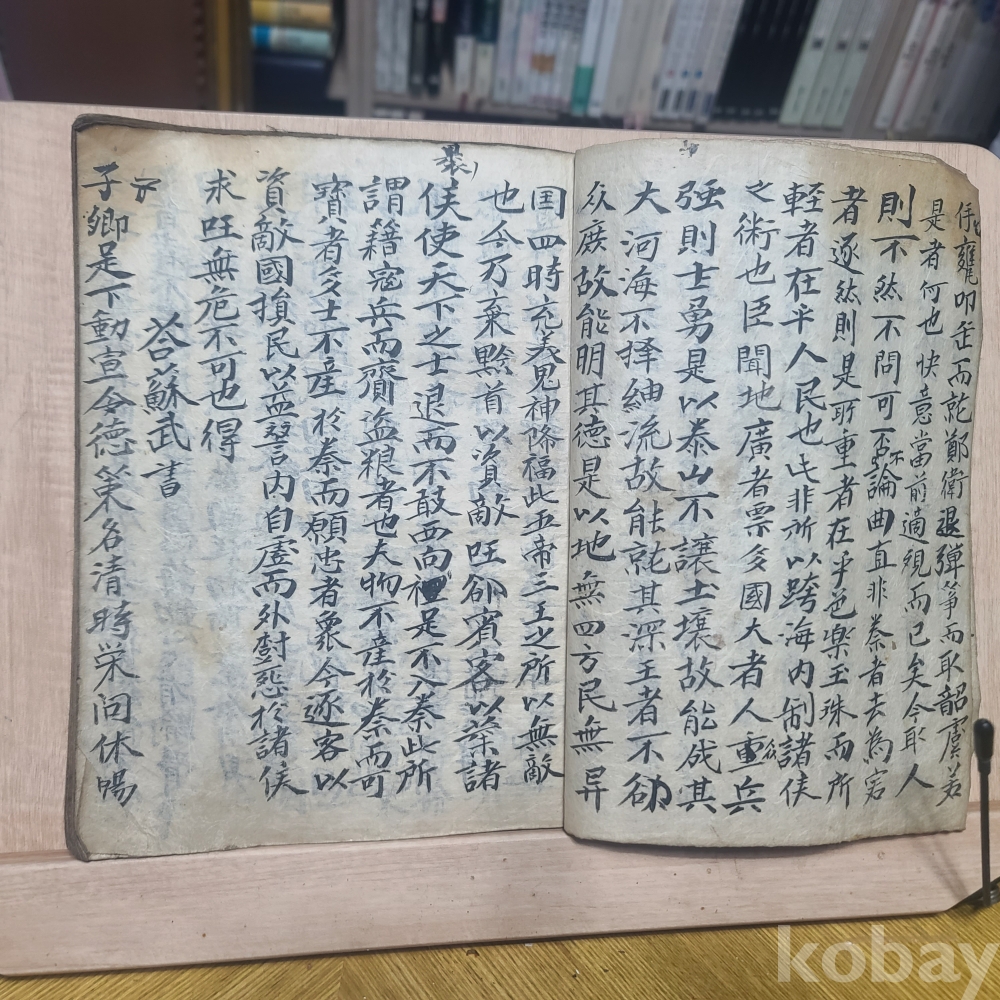 瓮叩缶而就鄭衛退彈箏而取韶虞若
是者何也快意當前適觀而已矣今取人
則不然不問可否不論曲直非秦者去為客
者逐然則是所重者在乎色樂玉珠而所
輕者在乎人民也此非所以跨海內制諸侯
之術也臣聞地廣者粟多國大者人重兵
强則士勇是以泰山不讓土壤故能成其
大河海不擇紬流故能就其深王者不卻
众庶故能明其德是以地無四方民無异
国四時充義鬼神降福此五帝三王之所以無敵
也今乃棄黔首以資敵国卻賓客以業諸
侯使天下之士退而不敢西向裡足不入秦此所
謂籍寇兵而賷盜粮者也夫物不產於秦而可
寶者多士不產於秦而願忠者衆今逐客以
資敵國損民以益讐內自虛而外樹怨於諸侯
求国無危不可也得
答蘇武書
子卿足下動宣令德策名清時栄問休暢
kobay